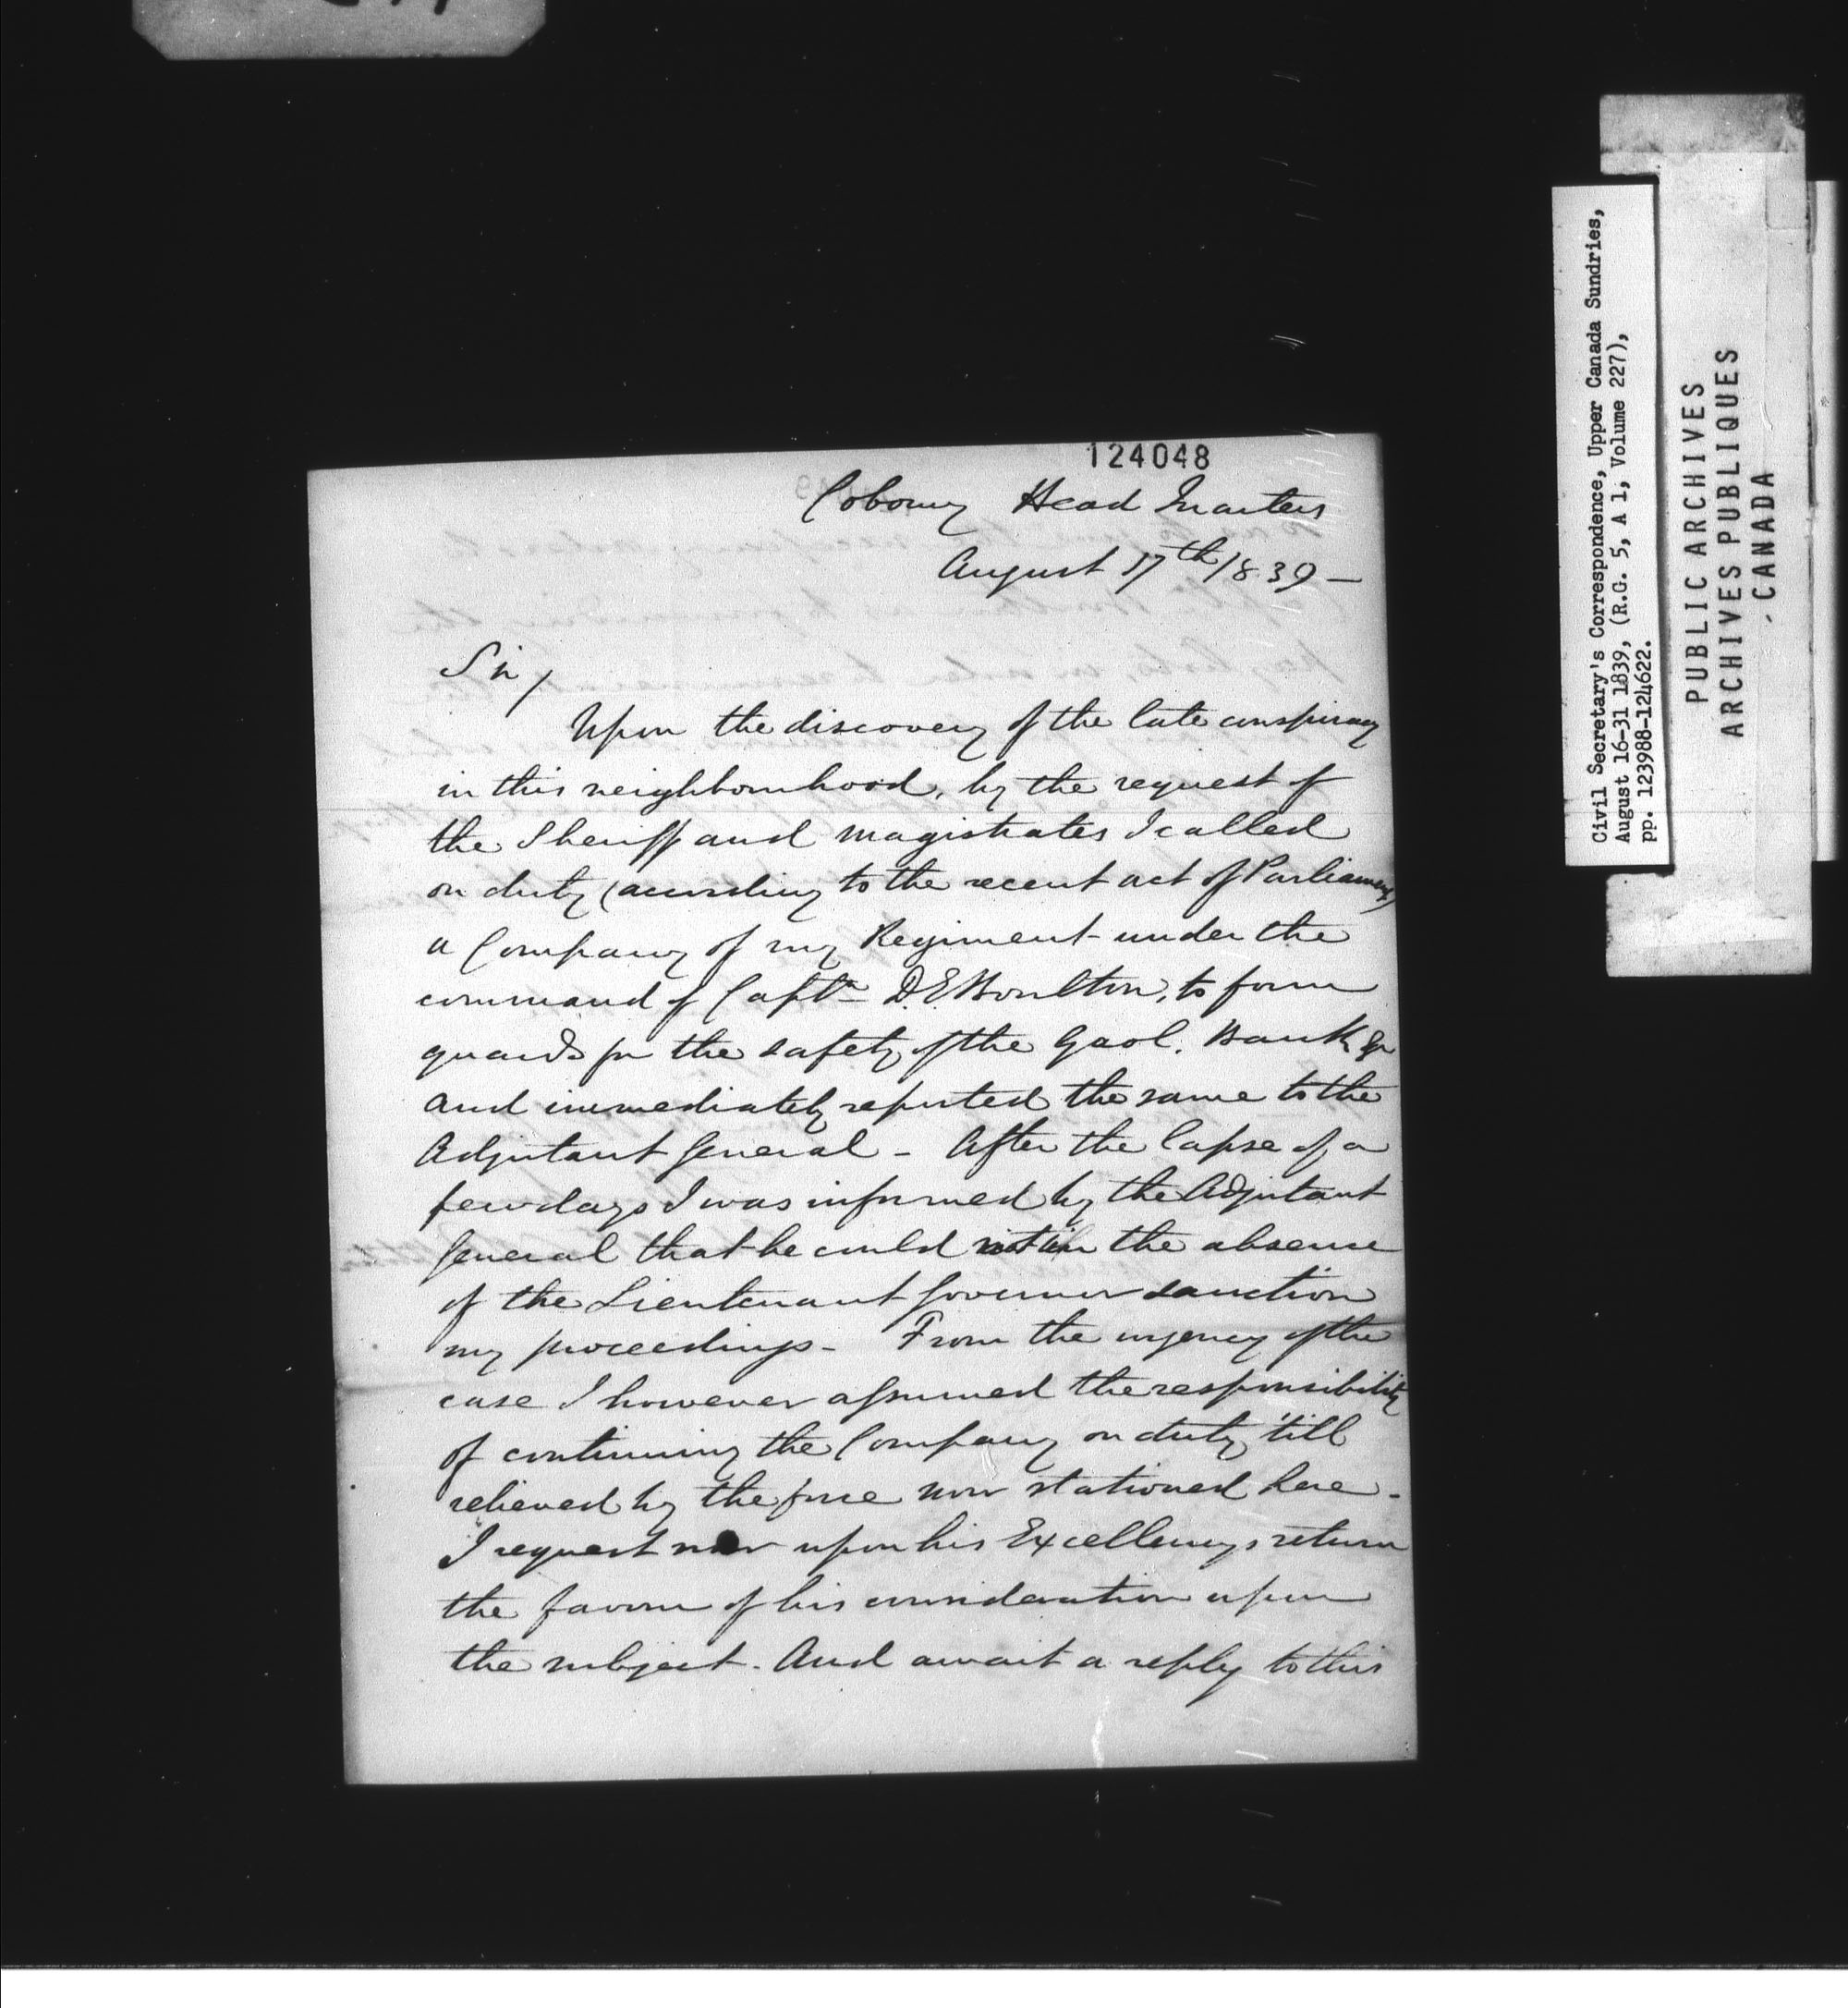 124048
Cobourg Head Quarters
August 17th 1839 —
Sir /
Upon the discovery of the late conspiracy
in this neighbourhood, by the request of
the Sheriff and Magistrates I called
on duty (according to the recent act of Parliament)
a Company of my Regiment under the
command of Captn D. E Boulton, to form
guards for the safety of the Gaol. Bank &c
and immediately reported the same to the
Adjutant General - After the lapse of a
few days I was informed by the Adjutant
General that he could not in the absence
of the Lieutenant Governor sanction
my proceedings - From the urgency of the
case I however assumed the responsibility
of continuing the Company on duty 'till
relieved by the force now stationed here -
I request now upon his Excellencys return
the favour of his consideration upon
the subject. And await a reply to this
Civil Secretary's Correspondence, Upper Canada Sundries,
August 16-31 1839, (R.G. 5, A 1, Volume 227),
pp. 123988-124622.
PUBLIC ARCHIVES
ARCHIVES PUBLIQUES
CANADA